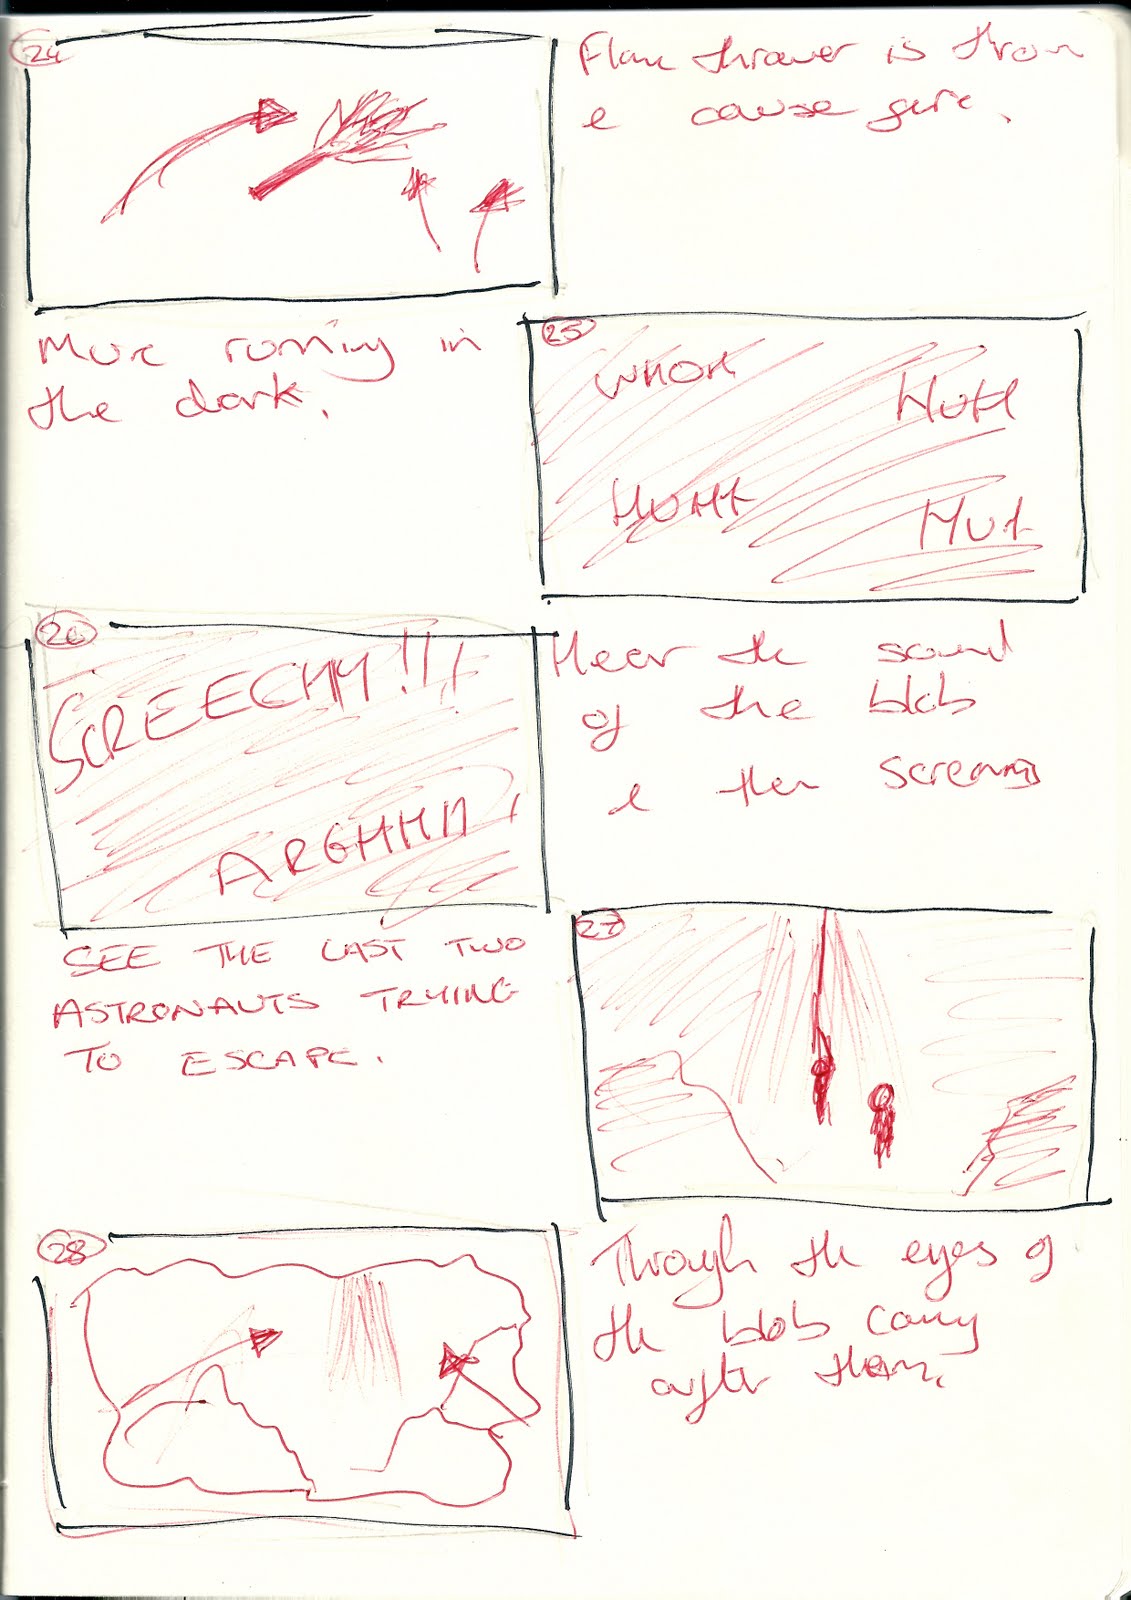 24
Flame thrower is thron
e cause fire.
More running in
the dark.
25
WHOH
HUHH
HUHH
HUH
26
SCREECHH!!!
ARGHHH!
Hear the sound
of the blob
e then screams
SEE THE LAST TWO
ASTRONAUTS TRYING
TO ESCAPE.
27
28
Through the eyes of
the blob comy
after them.